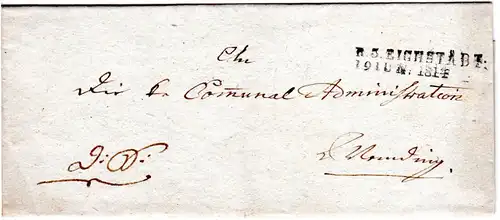 R.3.EICHSTÄDT.
19 IUN: 1814
An
Die k. Communal Administration
Wemding.